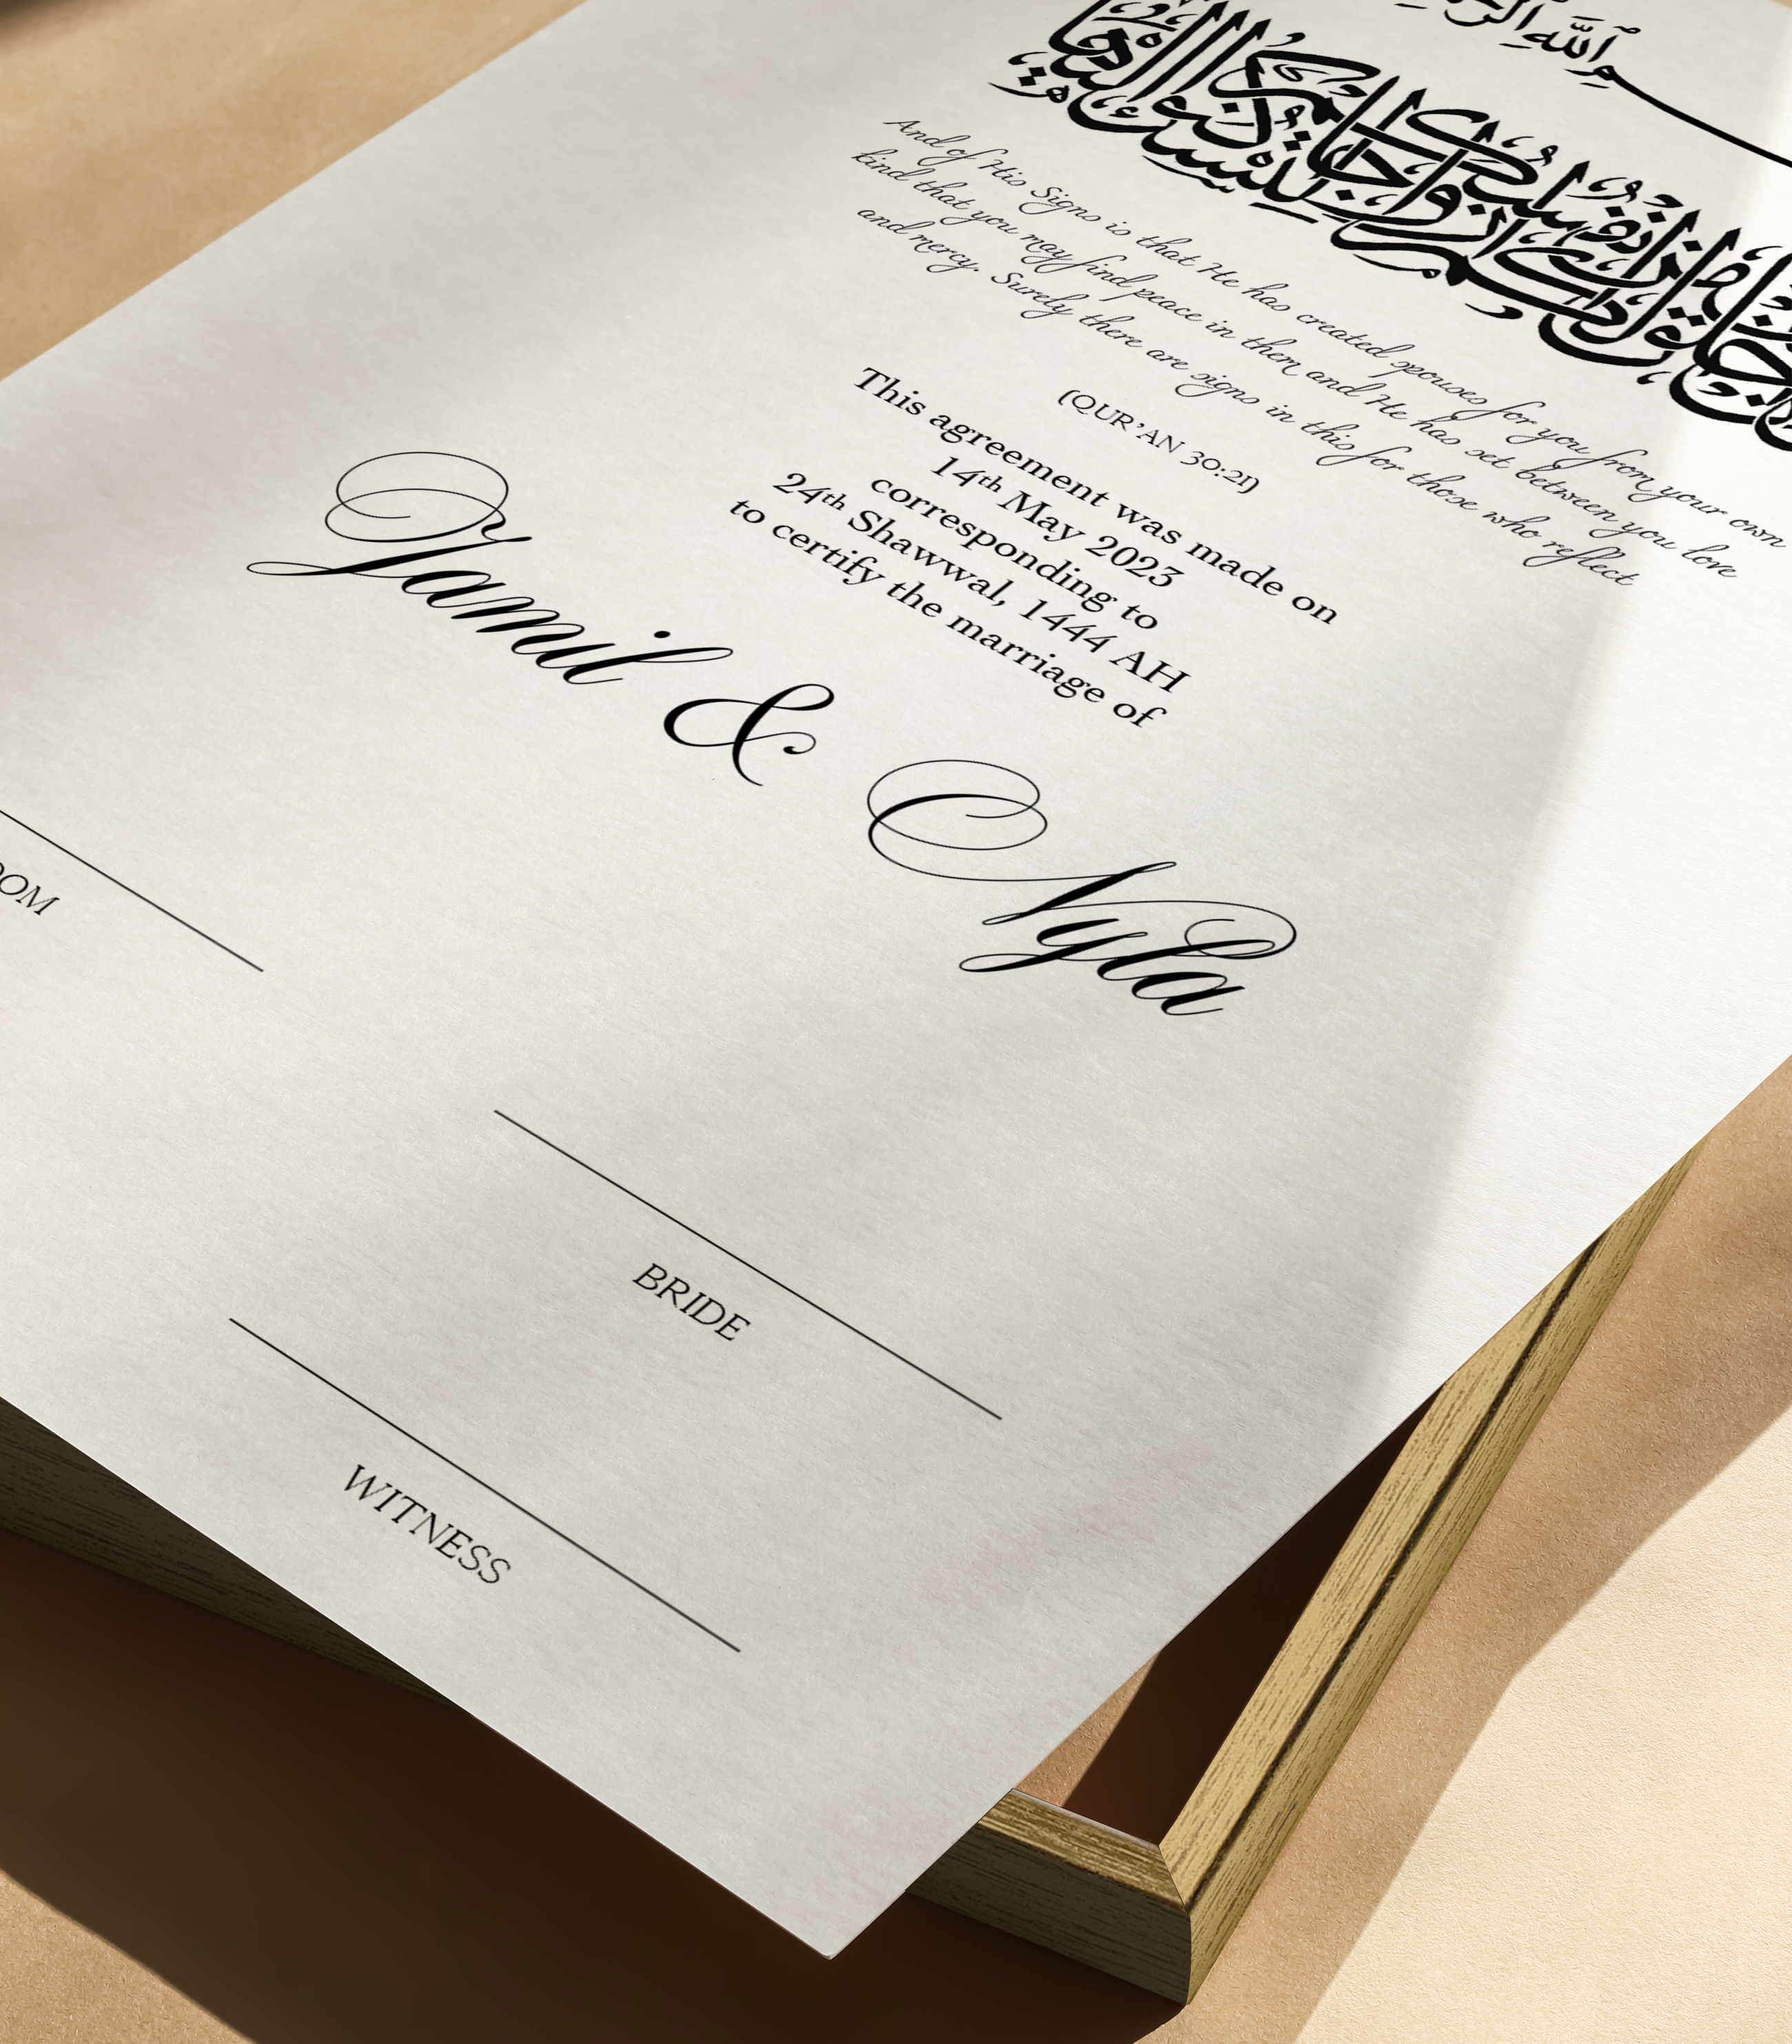 بسم الله
خلق لكم من أنفسكم أزواجا لتسكنوا إليها
And of His Signs is that He has created spouses for you from your own
kind that you may find peace in them and He has set between you love
and mercy. Surely there are signs in this for those who reflect
(QUR'AN 30:21)
This agreement was made on
14th May 2023
corresponding to
24th Shawwal, 1444 AH
to certify the marriage of
Jamil & Nyla
OOM
BRIDE
WITNESS